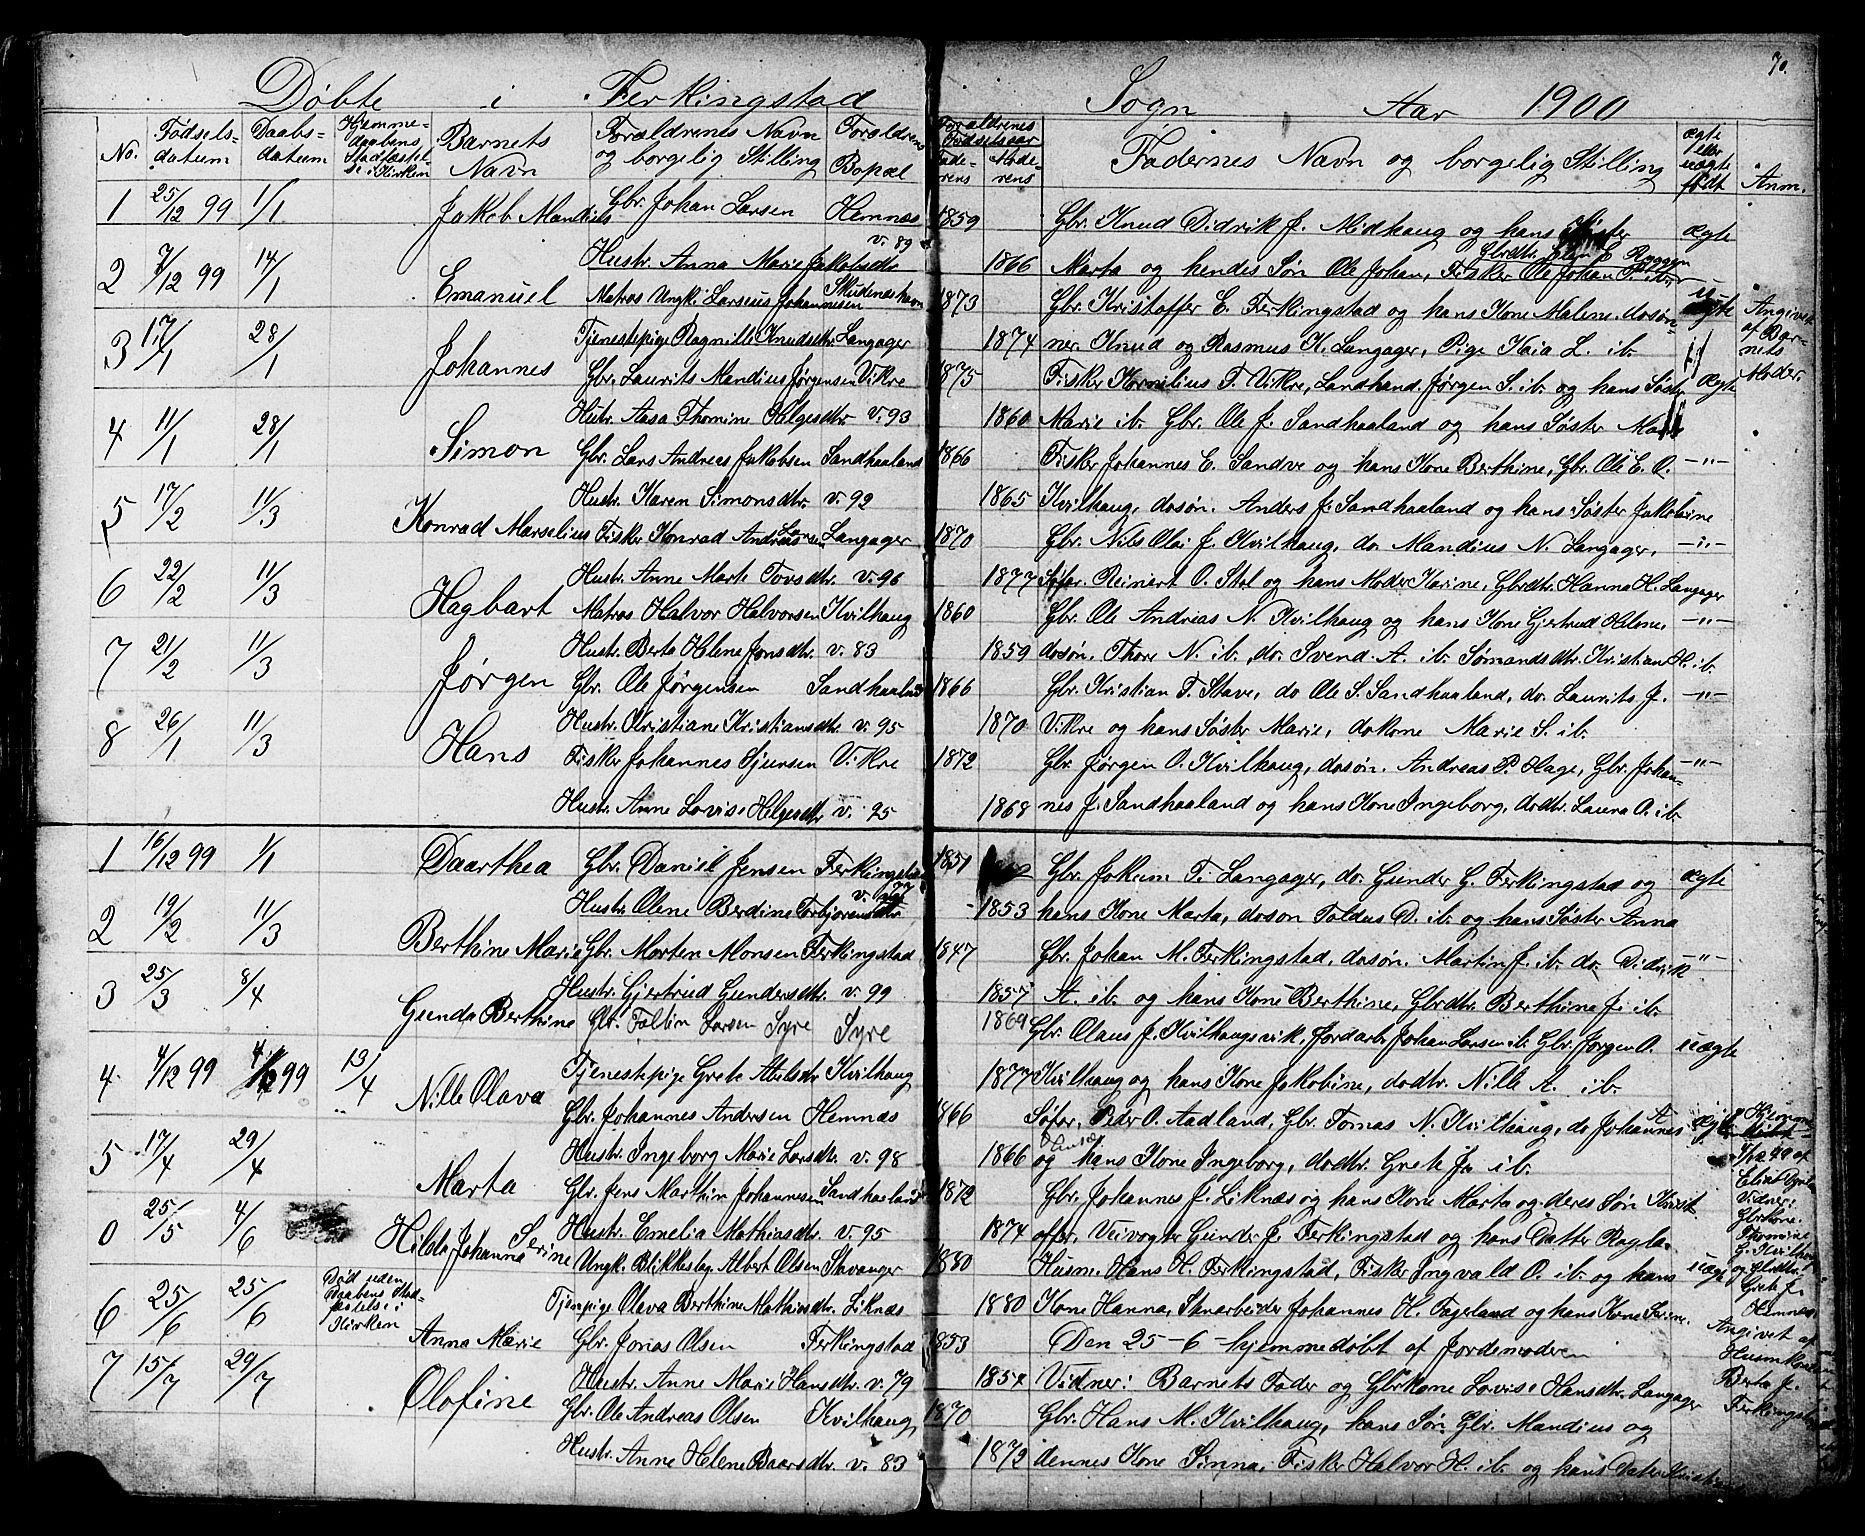 70.
Døbte i Ferkingstad Sogn Aar 1900
No. Fødsels-datum Daabs-datum Hjemme-daabens Stadfæstel-se i Kirken Barnets Navn Forældrenes Navn og borgelig Stilling Forældrenes Bopæl Forældrenes Fødselsaar Fade-rens Mode-rens Fadernes Navn og borgelig Stilling ægte eller uægte født Anm.
1 25/12 99 1/1 Jakob Mandius Gbr. Johan Larsen Hemnæs 1859 Gbr. Knud Didrik J. Midhaug og hans Søster ægte
Hustr. Anna Marie Jakobsdtr v. 89 1866 Marta og hendes Søn Ole Johan, Fisker Ole Johan
2 7/12 99 14/1 Emanuel Matros Ungk. Larsius Johannesen Skudeneshavn 1873 Gbr. Kristoffer E. Ferkingstad og hans Kone Malene, dosøn- uægte Angivet af Bar-nets Moder.
Tjenestepige Ragnille Knudsdtr Langager 1874 ner. Knud og Rasmus K. Langager, Pige Kaia L. ib.
3 17/1 28/1 Johannes Gbr. Laurits Mandius Jørgensen Vikre 1875 Fisker Kornelius T. Vikre, Landhand. Jørgen S. ib. og hans Søster ægte
Hustr. Aasa Thomine Helgesdtr v. 93 1860 Marie ib. Gbr. Ole J. Sandhaaland og hans Søster
4 11/1 28/1 Simon Gbr. Lars Andreas Jakobsen Sandhaaland 1866 Fisker Johannes E. Sandve og hans Kone Berthine, Gbr. Ole E. O. -"-
Hustr. Karen Simonsdtr. v. 92 1865 Kvilhaug, dosøn. Anders J. Sandhaaland og hans Søster Jakobine
5 17/2 11/3 Konrad Marselius Fisker Konrad Andreas Larsen Langager 1870 Gbr. Nils Olai J. Kvilhaug, do. Mandius N. Langager, -"-
Hustr. Anne Marte Tovsdtr v. 96 1877 Søfar. Reinert O. Stol og hans Moder Karine, Gbrdtr. Hanna H. Langager
6 22/2 11/3 Hagbart Matros Halvor Halvorsen Kvilhaug 1860 Gbr. Ole Andreas N. Kvilhaug og hans Kone Gjertrud Helene, -"-
Hustr. Berta Helene Jonsdtr v. 83 1859 dosøn. Thore N. ib., do. Svend A. ib. Sømandsdtr. Kristian H. ib.
7 21/2 11/3 Jørgen Gbr. Ole Jørgensen Sandhaaland 1866 Gbr. Kristian T. Stave, do Ole S. Sandhaaland, do. Laurits J. -"-
Hustr. Kristiane Kristiansdtr v. 95 1870 Vikre og hans Søster Marie, dokone Marie S. ib.
8 26/1 11/3 Hans Fisker Johannes Sjursen Vikre 1872 Gbr Jørgen O. Kvilhaug, dosøn. Andreas P. Hage, Gbr. Johan- -"-
Hustr. Anne Lovise Helgesdtr v. 95 1868 nes J. Sandhaaland og hans Kone Ingeborg, dodtr. Laura O. ib.
1 16/12 99 1/1 Daarthea Gbr. Daniel Jensen Ferkingstad 1851 Gbr. Jokum T. Langager, do. Gunder G. Ferkingstad og ægte
Hustr. Olene Berdine Torbjørensdtr v. 77 1853 hans Kone Marta, doson Toldus D. ib. og hans Søster Anna
2 19/2 11/3 Berthine Marie Gbr. Morten Monsen Ferkingstad 1847 Gbr. Johan M. Ferkingstad, dosøn. Martin J. ib. do. Didrik -"-
Hustr. Gjertrud Gundersdtr. v. 99 1857 A. ib. og hans Kone Berthine, Gbrdtr. Berthine J. ib.
3 25/3 8/4 Gunda Berthine Gbr. Tollin Larsen Syre Syre 1869 Gbr. Olaus J. Kvilhaugsvik, Jordarb. Johan Larsen ib. Gbr. Jørgen O. uægte
Tjenestepige Grete Abelsdtr Kvilhaug 1877 Kvilhaug og hans Kone Jakobine, dodtr. Nille A. ib.
4 4/12 99 4/12 99 13/4 Nille Olava Gbr. Johannes Andersen Hemnæs 1866 Søfar. Peder O. Aadland, Gbr. Tomas N. Kvilhaug, do Johannes A. ægte
Hustr. Ingeborg Marie Larsdtr. v. 98 1866 og hans Kone Ingeborg, dodtr. Grete J. ib.
5 17/4 29/4 Marta Gbr. Jens Marthin Johannesen Sandhaaland 1872 Gbr. Johannes J. Liknæs og hans Kone Marta og deres Søn Krist-
Hustr. Emelia Mathiasdtr. v. 95 1874 offer, Veivogter Gunder J. Ferkingstad og hans Datter
0 25/5 4/6 Hilda Johanna Serine Ungk. Blikkeslag. Albert Olsen Stavanger 1880 Husm. Hans H. Ferkingstad, Fisker Ingvald O. ib. og hans uægte
Tjenpige Olava Berthine Mathiasdtr. Liknæs 1880 Kone Hanna, Stenarbeider Johannes H. Fageland og hans Kone Serine.
6 25/6 25/6 Død uden Daabens Stad-fæstelse i Kirken Anna Marie Gbr. Jonas Olsen Ferkingstad 1853 Den 25-6-hjemmedøbt af Jordemoderen
Hustr. Anne Marie Hansdtr v. 79 1854 Vidner: Barnets Fader og Gbrkone Lovise Hansdtr. Langager
7 15/7 29/7 Olofine Gbr. Ole Andreas Olsen Kvilhaug 1870 Gbr. Hans M. Kvilhaug, hans Søn Gbr. Mandius og
Hustr. Anne Helene Baarsdtr v. 83 1873 dennes Kone Sinna, Fisker Halvor H. ib. og hans Dater
Vidner:
Gbrkone.
Thomine
G. Kvilhaug
og Gbrdtr.
Grete J.
Hemnæs
Angivet af
Husmkone
Berta J.
Ferkingstad